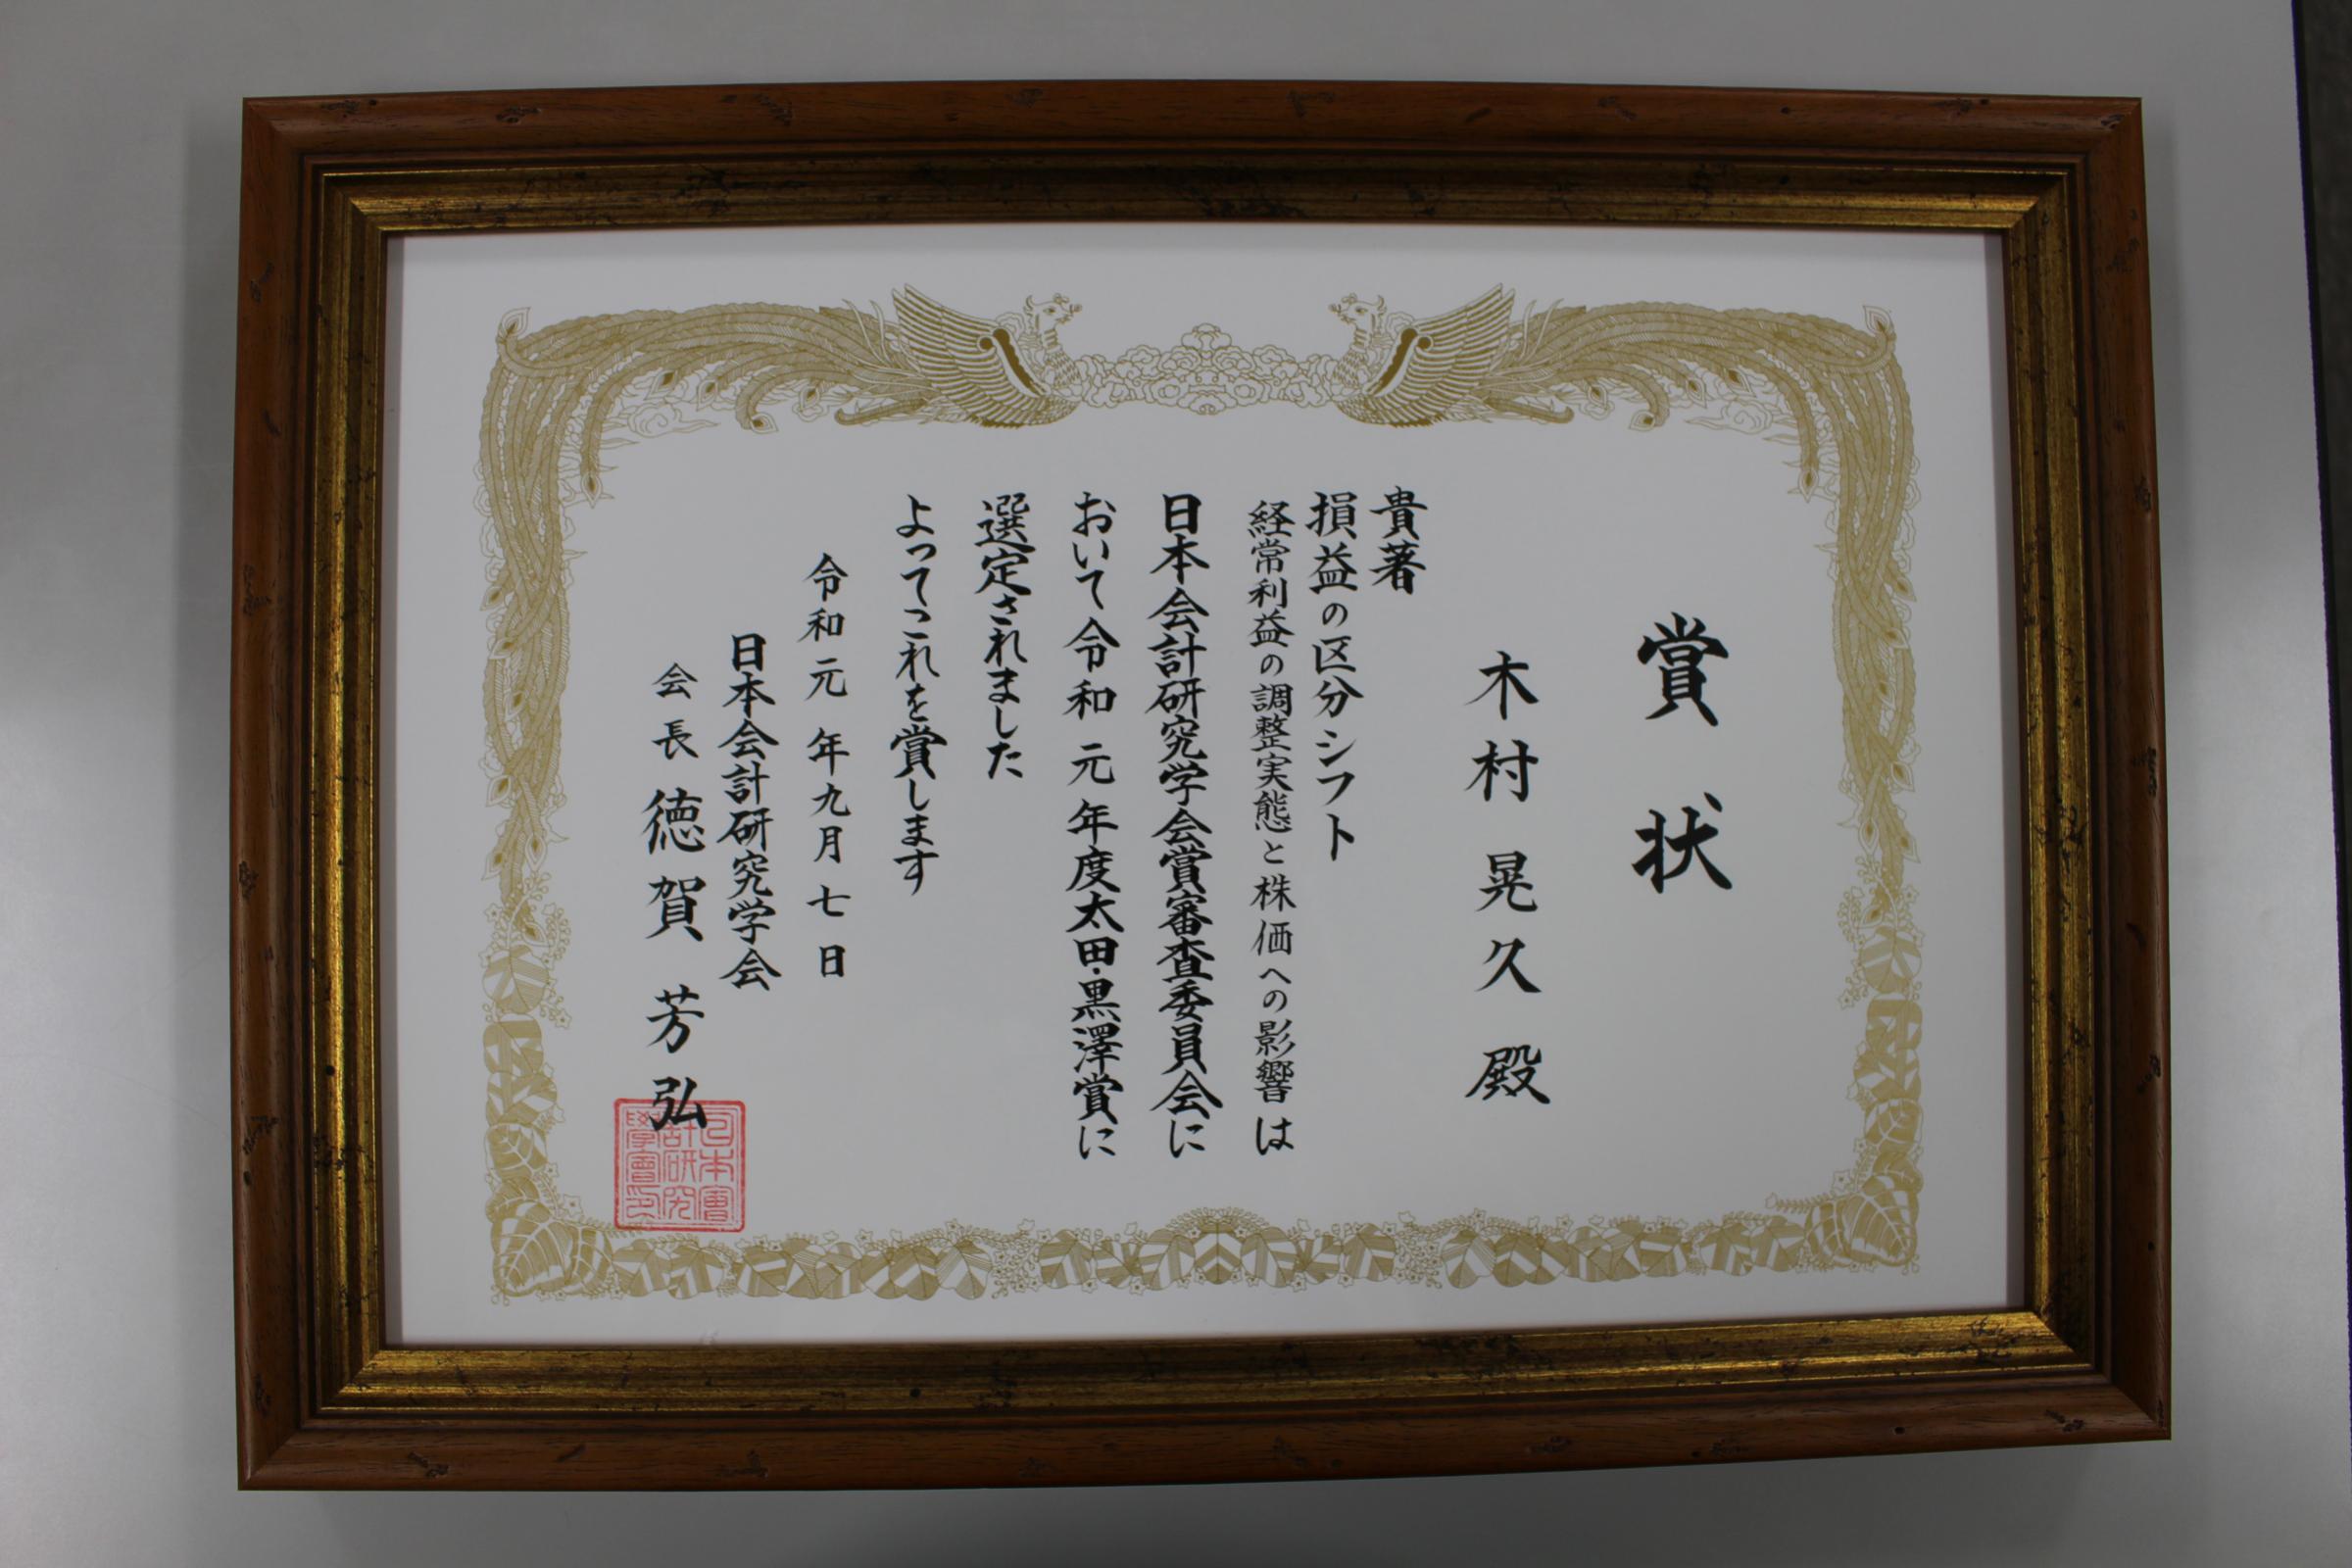 賞状
木村晃久殿
貴著
損益の区分シフト
経常利益の調整実態と株価への影響は
日本会計研究学会賞審査委員会に
おいて令和元年度太田・黒澤賞に
選定されました
よってこれを賞します
令和元年九月七日
日本会計研究学会
会長徳賀芳弘
日本會計研究學會之印